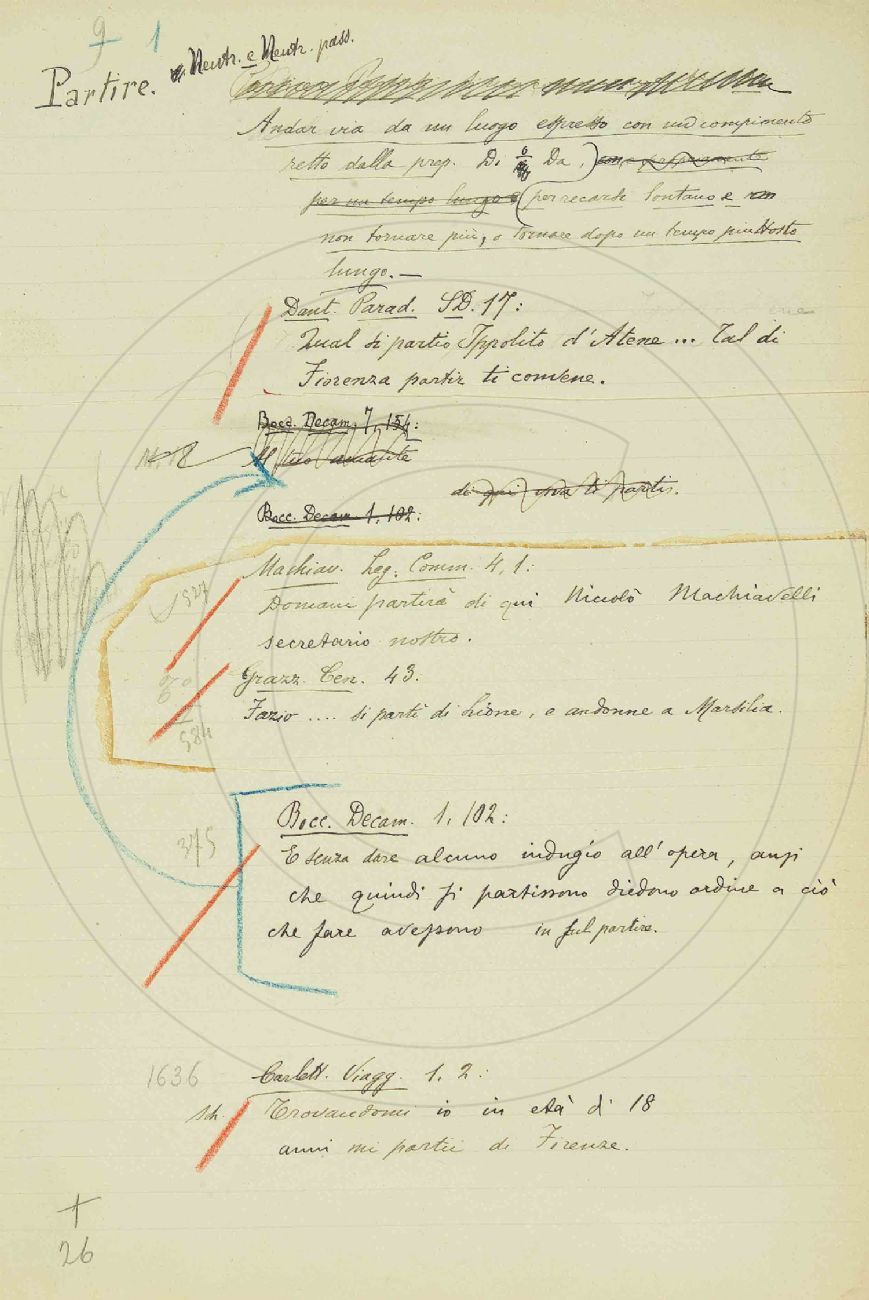 9 1
Partire. Neutr. e Neutr. pass.
Andar via da un luogo espresso con un compimento
retto dalla prep. Di o Da,) con
per un tempo lungo (per recarsi lontano e
non tornare più, o tornare dopo un tempo piuttosto
lungo. —
Dant. Parad. SD. 17:
Qual si partio Ippolito d'Atene ... Tal di
Fiorenza partir ti convene.
Bocc. Decam. 7, 154:
Il tuo amante
di qui via ti partis.
Bocc. Decam 1, 102:
Machiav. Leg. Comm. 4, 1:
527
Domani partirà di qui Niccolò Machiavelli
secretario nostro.
Grazz. Cen. 43.
Fazio .... si partì di Lione, e andonne a Marsilia.
584
Bocc. Decam. 1, 102:
375
E senza dare alcuno indugio all'opera, anzi
che quindi si partissono diedono ordine a ciò
che fare avessono in sul partire.
1636 Carlett. Viagg. 1. 2:
Sch. Trovandomi io in età di 18
anni mi partii di Firenze.
26